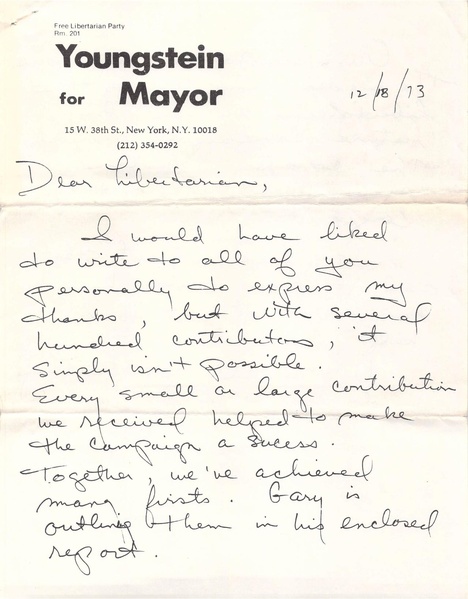 Free Libertarian Party
Rm. 201
Youngstein
for Mayor
15 W. 38th St., New York, N.Y. 10018
(212) 354-0292
12/18/73
Dear Libertarian,
I would have liked
to write to all of you
personally to express my
thanks, but with several
hundred contributors, it
simply isn't possible.
Every small or large contribution
we received helped to make
the campaign a sucess.
Together, we've achieved
many firsts. Gary is
outling them in his enclosed
report.